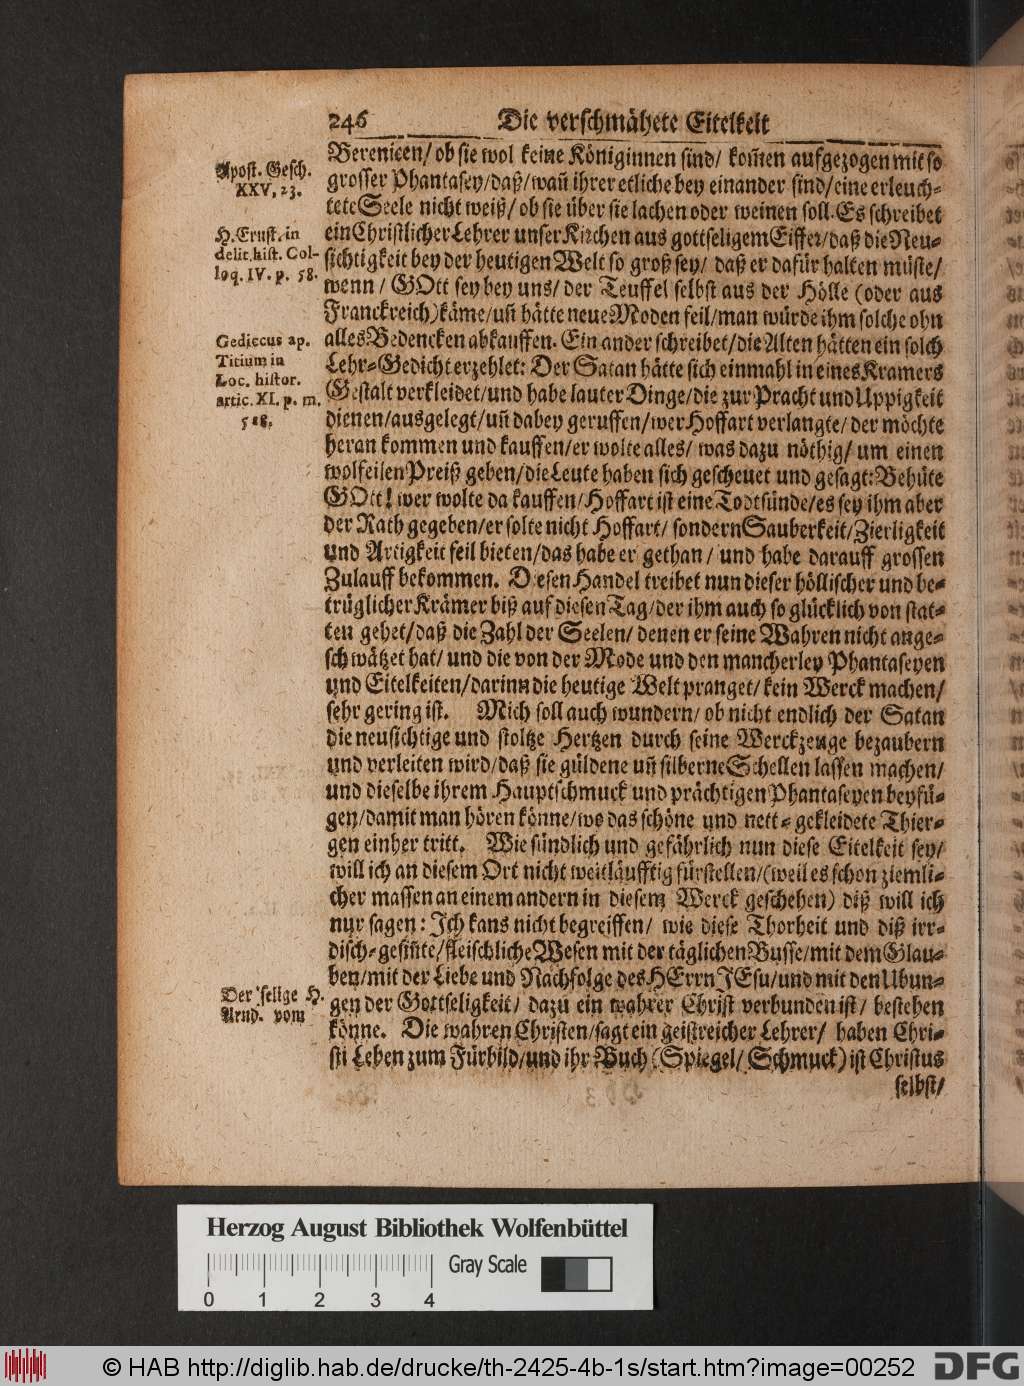 246 Die verschmähete Eitelkeit
Berenicen/ ob sie wol keine Königinnen sind/ kom̄en aufgezogen mit so
Apost. Gesch.
XXV, 23.
grosser Phantasey/ daß/ wañ ihrer etliche bey einander sind/ eine erleuch-
tete Seele nicht weiß/ ob sie über sie lachen oder weinen soll. Es schreibet
H. Ernst. in
delic. hist. Col-
loq. IV. p. 58.
ein Christlicher Lehrer unser Kirchen aus gottseligem Eiffer/ daß die Neu-
sichtigkeit bey der heutigen Welt so groß sey/ daß er dafür halten müste/
wenn/ GOtt sey bey uns/ der Teuffel selbst aus der Hölle (oder aus
Franckreich) käme/ uñ hätte neue Moden feil/ man würde ihm solche ohn
Gediccus ap.
Titium in
Loc. histor.
artic. XI. p. m.
518.
alles Bedencken abkauffen. Ein ander schreibet/ die Alten hätten ein solch
Lehr-Gedicht erzehlet: Der Satan hätte sich einmahl in eines Kramers
Gestalt verkleidet/ und habe lauter Dinge/ die zur Pracht und Uppigkeit
dienen/ ausgelegt/ uñ dabey geruffen/ wer Hoffart verlangte/ der möchte
heran kommen und kauffen/ er wolte alles/ was dazu nöthig/ um einen
wolfeilen Preiß geben/ die Leute haben sich gescheuet und gesagt: Behüte
GOtt! wer wolte da kauffen/ Hoffart ist eine Todtsünde/ es sey ihm aber
der Rath gegeben/ er solte nicht Hoffart/ sondern Sauberkeit/ Zierligkeit
und Artigkeit feil bieten/ das habe er gethan/ und habe darauff grossen
Zulauff bekommen. Diesen Handel treibet nun dieser höllischer und be-
trüglicher Krämer biß auf diesen Tag/ der ihm auch so glücklich von stat-
ten gehet/ daß die Zahl der Seelen/ denen er seine Wahren nicht ange-
schwätzet hat/ und die von der Mode und den mancherley Phantaseyen
und Eitelkeiten/ darinn die heutige Welt pranget/ kein Werck machen/
sehr gering ist. Mich soll auch wundern/ ob nicht endlich der Satan
die neusichtige und stoltze Hertzen durch seine Werckzeuge bezaubern
und verleiten wird/ daß sie güldene uñ silberne Schellen lassen machen/
und dieselbe ihrem Hauptschmuck und prächtigen Phantaseyen beyfü-
gen/ damit man hören könne/ wo das schöne und nett-gekleidete Thier-
gen einher tritt. Wie sündlich und gefährlich nun diese Eitelkeit sey/
will ich an diesem Ort nicht weitläufftig fürstellen/ (weil es schon ziemli-
cher massen an einem andern in diesem Werck geschehen) diß will ich
nur sagen: Ich kans nicht begreiffen/ wie diese Thorheit und diß irr-
disch-gesiñte/ fleischliche Wesen mit der täglichen Busse/ mit dem Glau-
ben/ mit der Liebe und Nachfolge des HErrn JEsu/ und mit den Ubun-
Der selige H.
Arnd. vom
gen der Gottseligkeit/ dazu ein wahrer Christ verbunden ist/ bestehen
könne. Die wahren Christen/ sagt ein geistreicher Lehrer/ haben Chri-
sti Leben zum Fürbild/ und ihr Buch (Spiegel/ Schmuck) ist Christus
selbst/
Herzog August Bibliothek Wolfenbüttel
Gray Scale
0 1 2 3 4
© HAB http://diglib.hab.de/drucke/th-2425-4b-1s/start.htm?image=00252 DFG